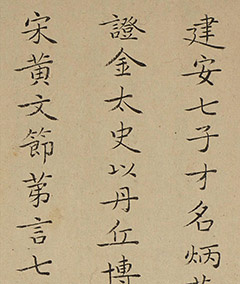 建安七子才名炳
證金太史以丹丘博
宋黃文節苐言七